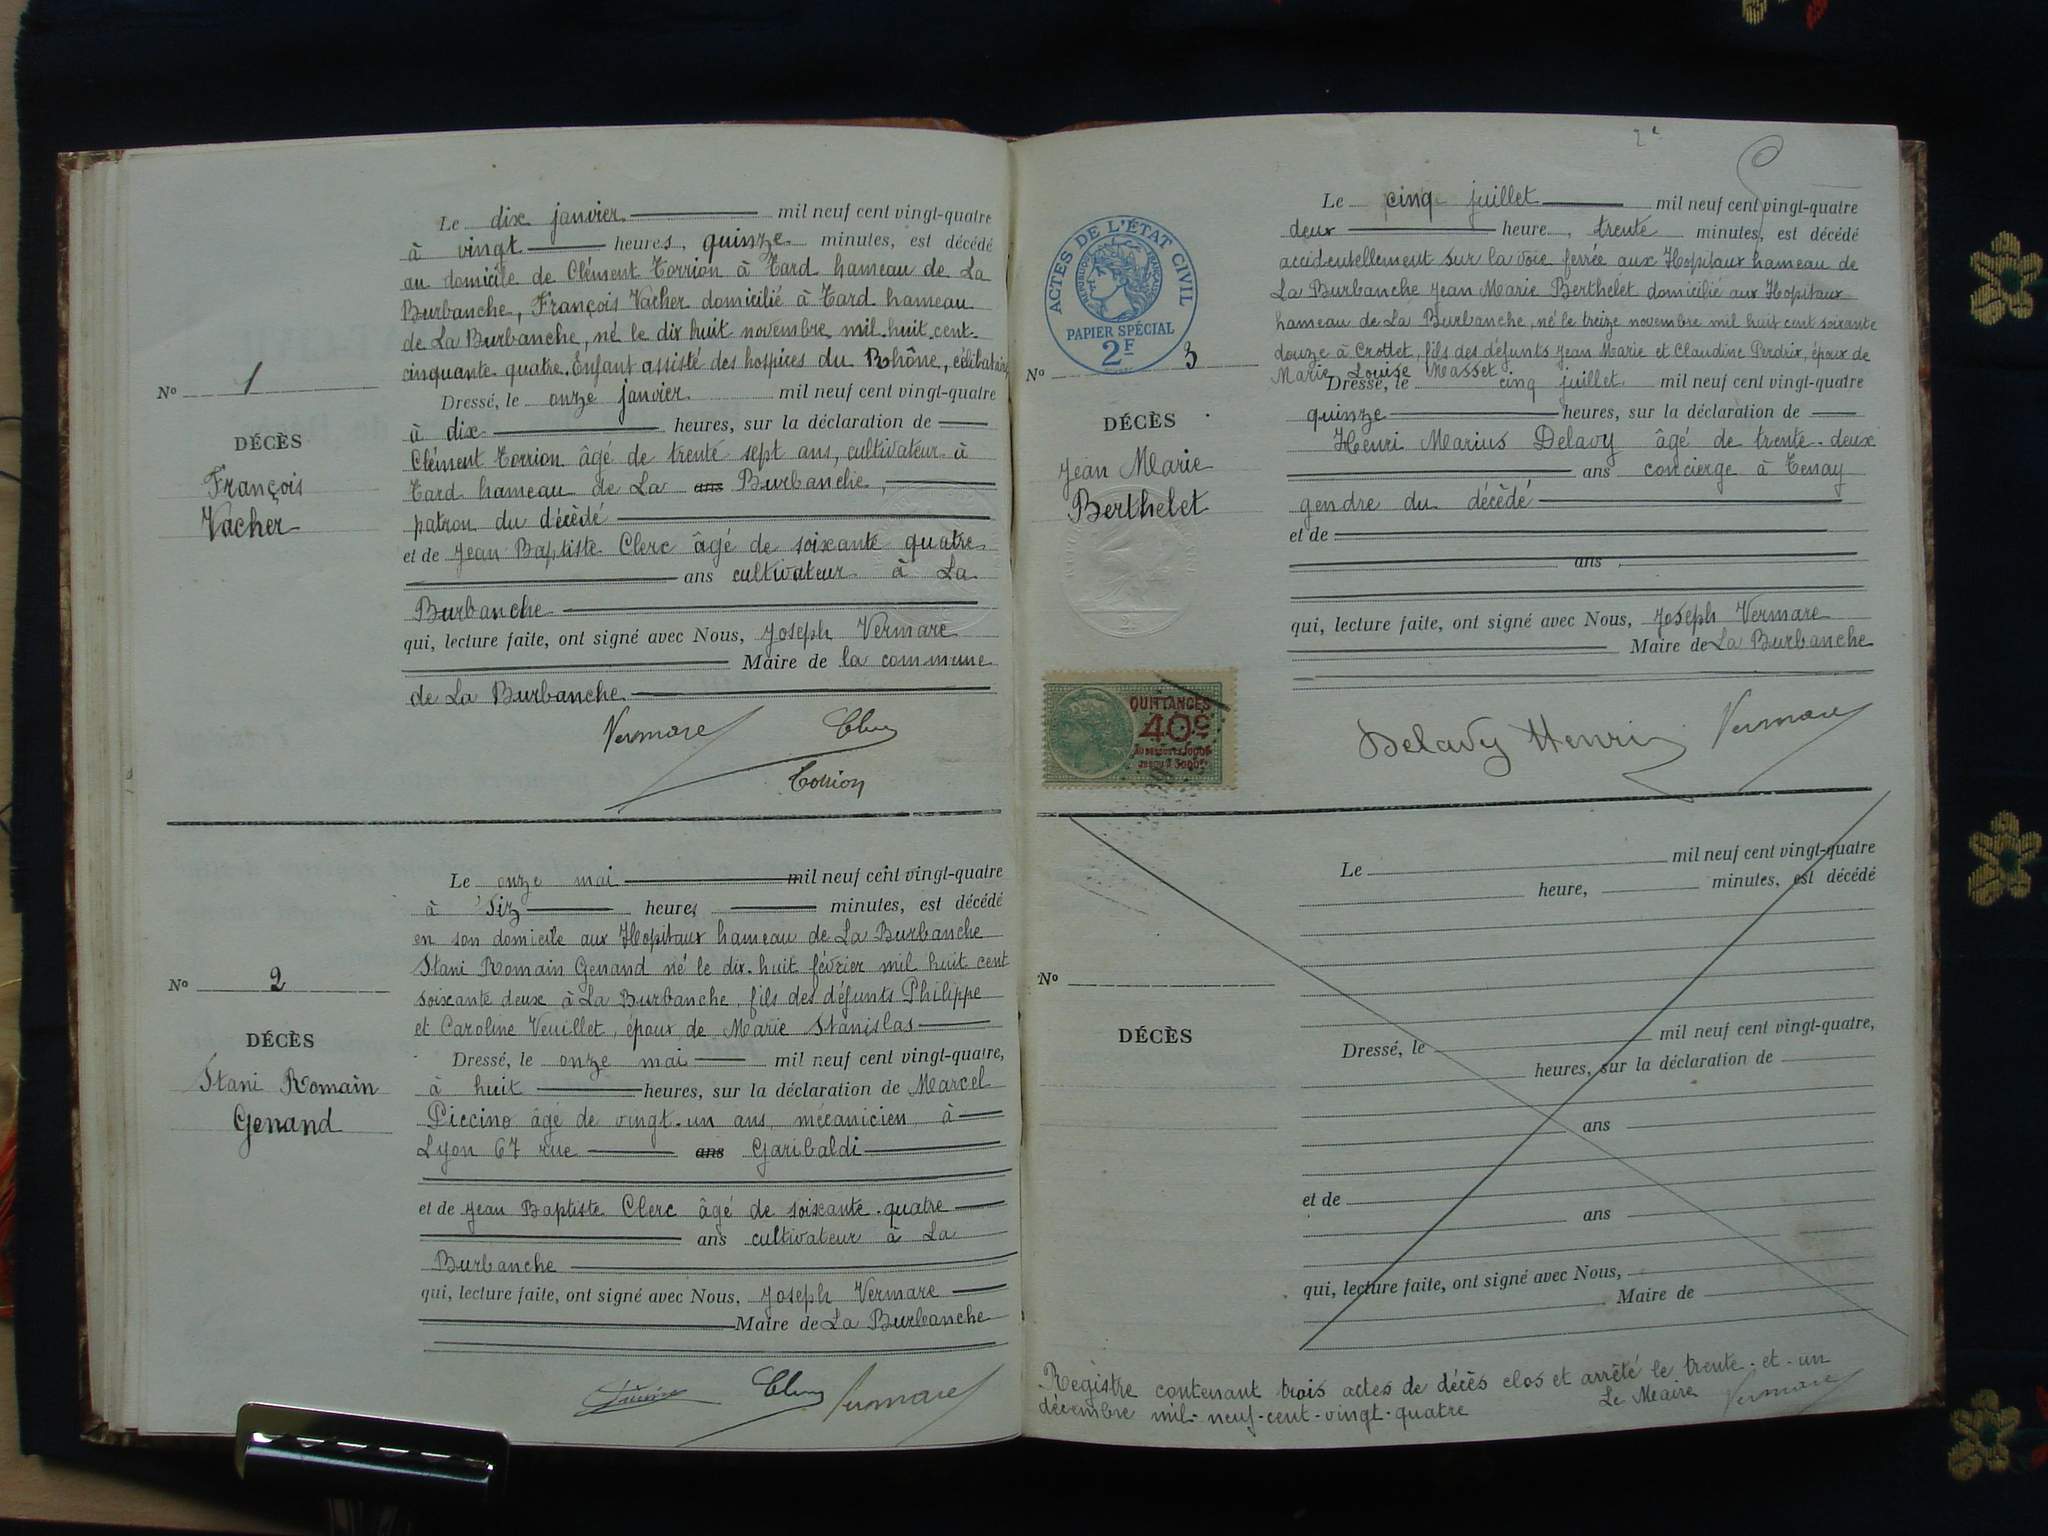 Le dix janvier mil neuf cent vingt-quatre
à vingt heures, quinze minutes, est décédé
au domicile de Clément Torrion à Tard hameau de La
Burbanche, François Vacher domicilié à Tard hameau
de La Burbanche, né le dix huit novembre mil huit cent
cinquante quatre. Enfant assisté des hospices du Rhône, célibataire
Nº 1
Dressé, le onze janvier mil neuf cent vingt-quatre
à dix heures, sur la déclaration de
DÉCÈS
François
Vacher
Clément Torrion âgé de trente sept ans, cultivateur à
Tard hameau de La ans Burbanche,
patron du décédé
et de Jean Baptiste Clerc âgé de soixante quatre
ans cultivateur à La
Burbanche
qui, lecture faite, ont signé avec Nous, Joseph Vermare
Maire de la commune
de La Burbanche
Vermare Clerc
Torrion
Le onze mai mil neuf cent vingt-quatre
à six heures minutes, est décédé
en son domicile aux Hopitaux hameau de La Burbanche
Stani Romain Genand né le dix-huit février mil huit cent
soixante deux à La Burbanche, fils des défunts Philippe
et Caroline Veuillet, époux de Marie Stanislas
Nº 2
DÉCÈS
Stani Romain
Genand
Dressé, le onze mai mil neuf cent vingt-quatre,
à huit heures, sur la déclaration de Marcel
Piccino âgé de vingt-un ans, mécanicien à
Lyon 67 rue ans Garibaldi
et de Jean Baptiste Clerc âgé de soixante-quatre
ans cultivateur à La
Burbanche
qui, lecture faite, ont signé avec Nous, Joseph Vermare
Maire de La Burbanche
Clerc Vermare
2e
ACTES DE L'ÉTAT CIVIL
RÉPUBLIQUE FRANÇAISE
PAPIER SPÉCIAL
2F
Le cinq juillet mil neuf cent vingt-quatre
deux heure, trente minutes, est décédé
accidentellement sur la voie ferrée aux Hopitaux hameau de
La Burbanche Jean Marie Berthelet domicilié aux Hopitaux
hameau de La Burbanche, né le treize novembre mil huit cent soixante
douze à Crottet, fils des défunts Jean Marie et Claudine Perdrix, époux de
Marie Louise Masset
Nº 3
DÉCÈS
Jean Marie
Berthelet
Dressé, le cinq juillet mil neuf cent vingt-quatre
quinze heures, sur la déclaration de
Henri Marius Delavy âgé de trente-deux
ans concierge à Tenay
gendre du décédé
et de
ans
qui, lecture faite, ont signé avec Nous, Joseph Vermare
Maire de La Burbanche
QUITTANCES
40c
Delavy Henri Vermare
Le mil neuf cent vingt-quatre
heure, minutes, est décédé
Nº
DÉCÈS
Dressé, le mil neuf cent vingt-quatre,
heures, sur la déclaration de
ans
et de
ans
qui, lecture faite, ont signé avec Nous,
Maire de
Registre contenant trois actes de décès clos et arrêté le trente-et-un
décembre mil-neuf-cent-vingt-quatre
Le Maire Vermare